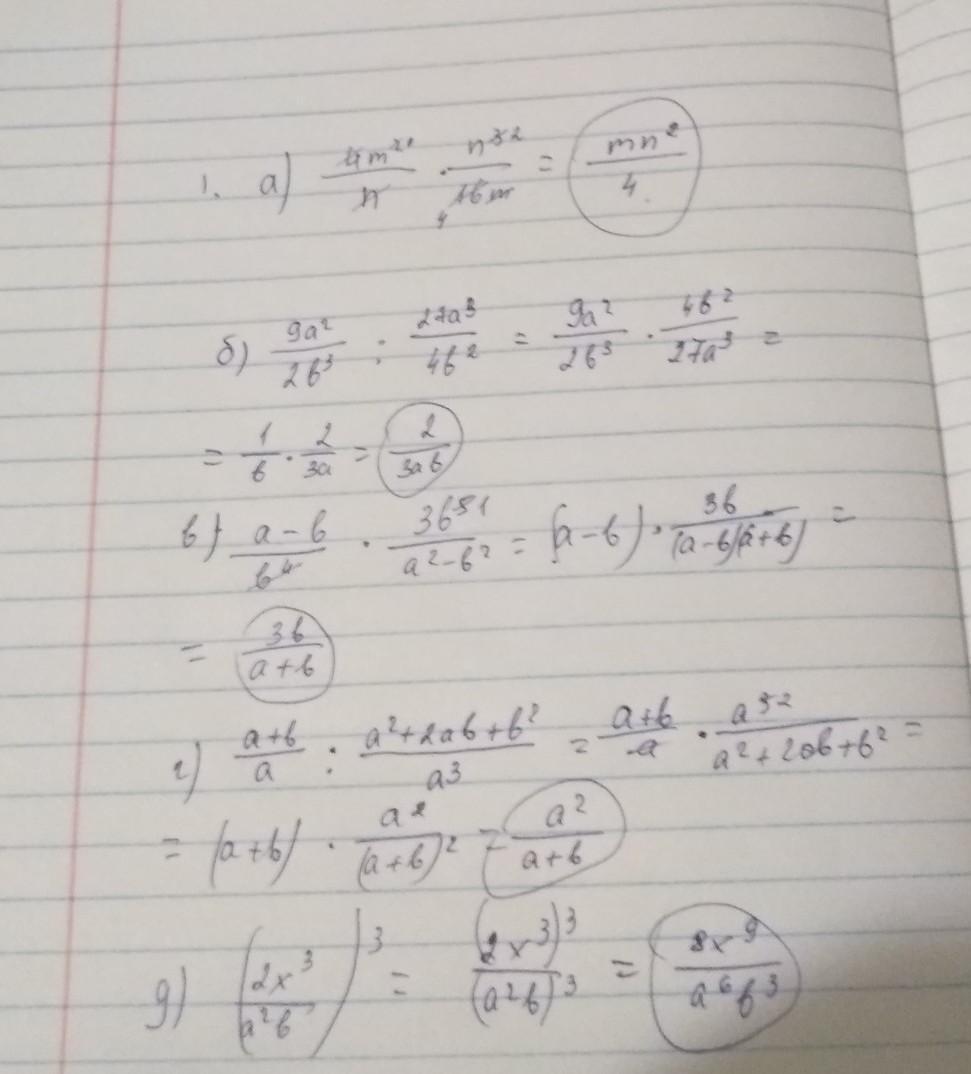 1. а) 4m²/n · n³/16m = mn²/4
б) 9a²/2b³ : 27a³/4b² = 9a²/2b³ · 4b²/27a³ =
= 1/b · 2/3a = 2/3ab
в) a-b/b⁴ · 3b⁵/a²-b² = (a-b) · 3b/(a-b)(a+b) =
= 3b/a+b
г) a+b/a : a²+2ab+b²/a³ = a+b/a · a³/a²+2ab+b² =
= (a+b) · a²/(a+b)² = a²/a+b
д) (2x³/a²b)³ = (2x³)³/(a²b)³ = 8x⁹/a⁶b³